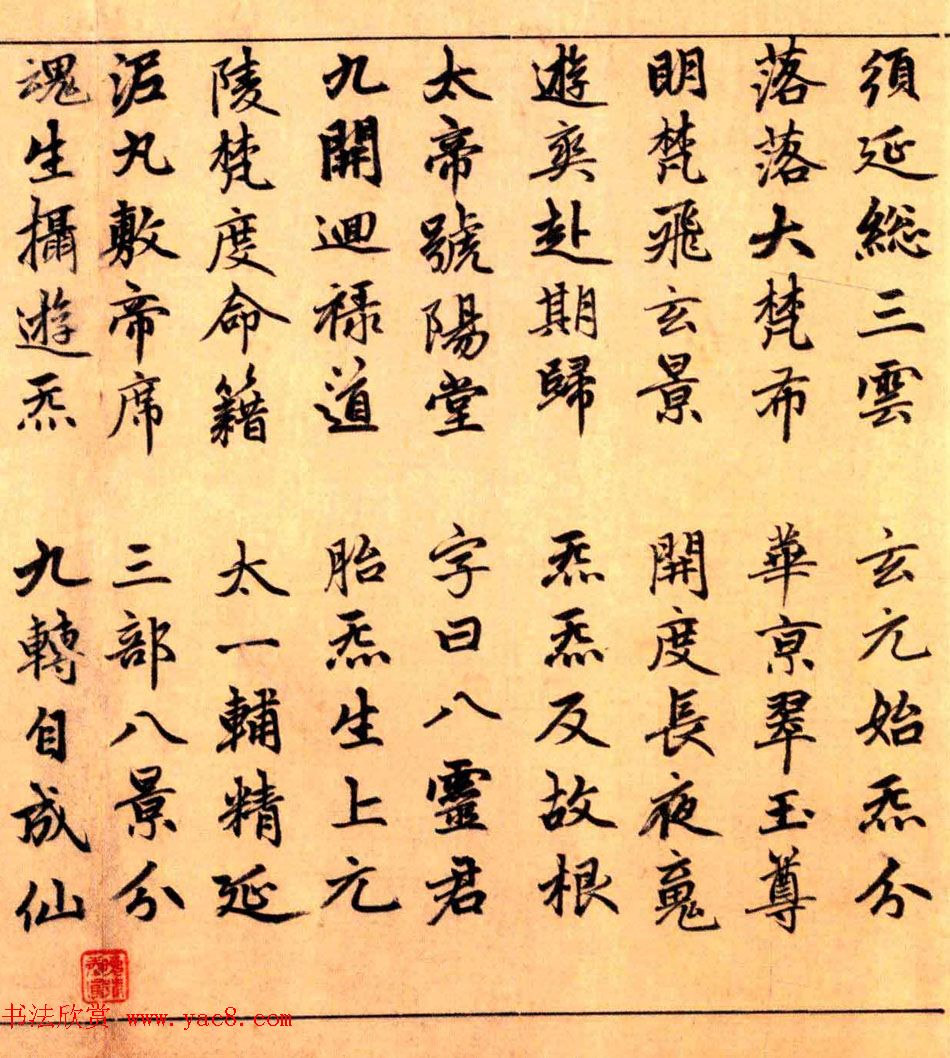 須延総三雲 玄元始炁分
落落大梵布 華京翠玉尊
明梵飛玄景 開度長夜䰟
遊爽赴期歸 炁炁反故根
太帝號陽堂 字曰八靈君
九開迴祿道 胎炁生上元
陵梵度命籍 太一輔精延
泥丸敷帝席 三部八景分
魂生攝遊炁 九轉自成仙
书法欣赏 www.yac8.com